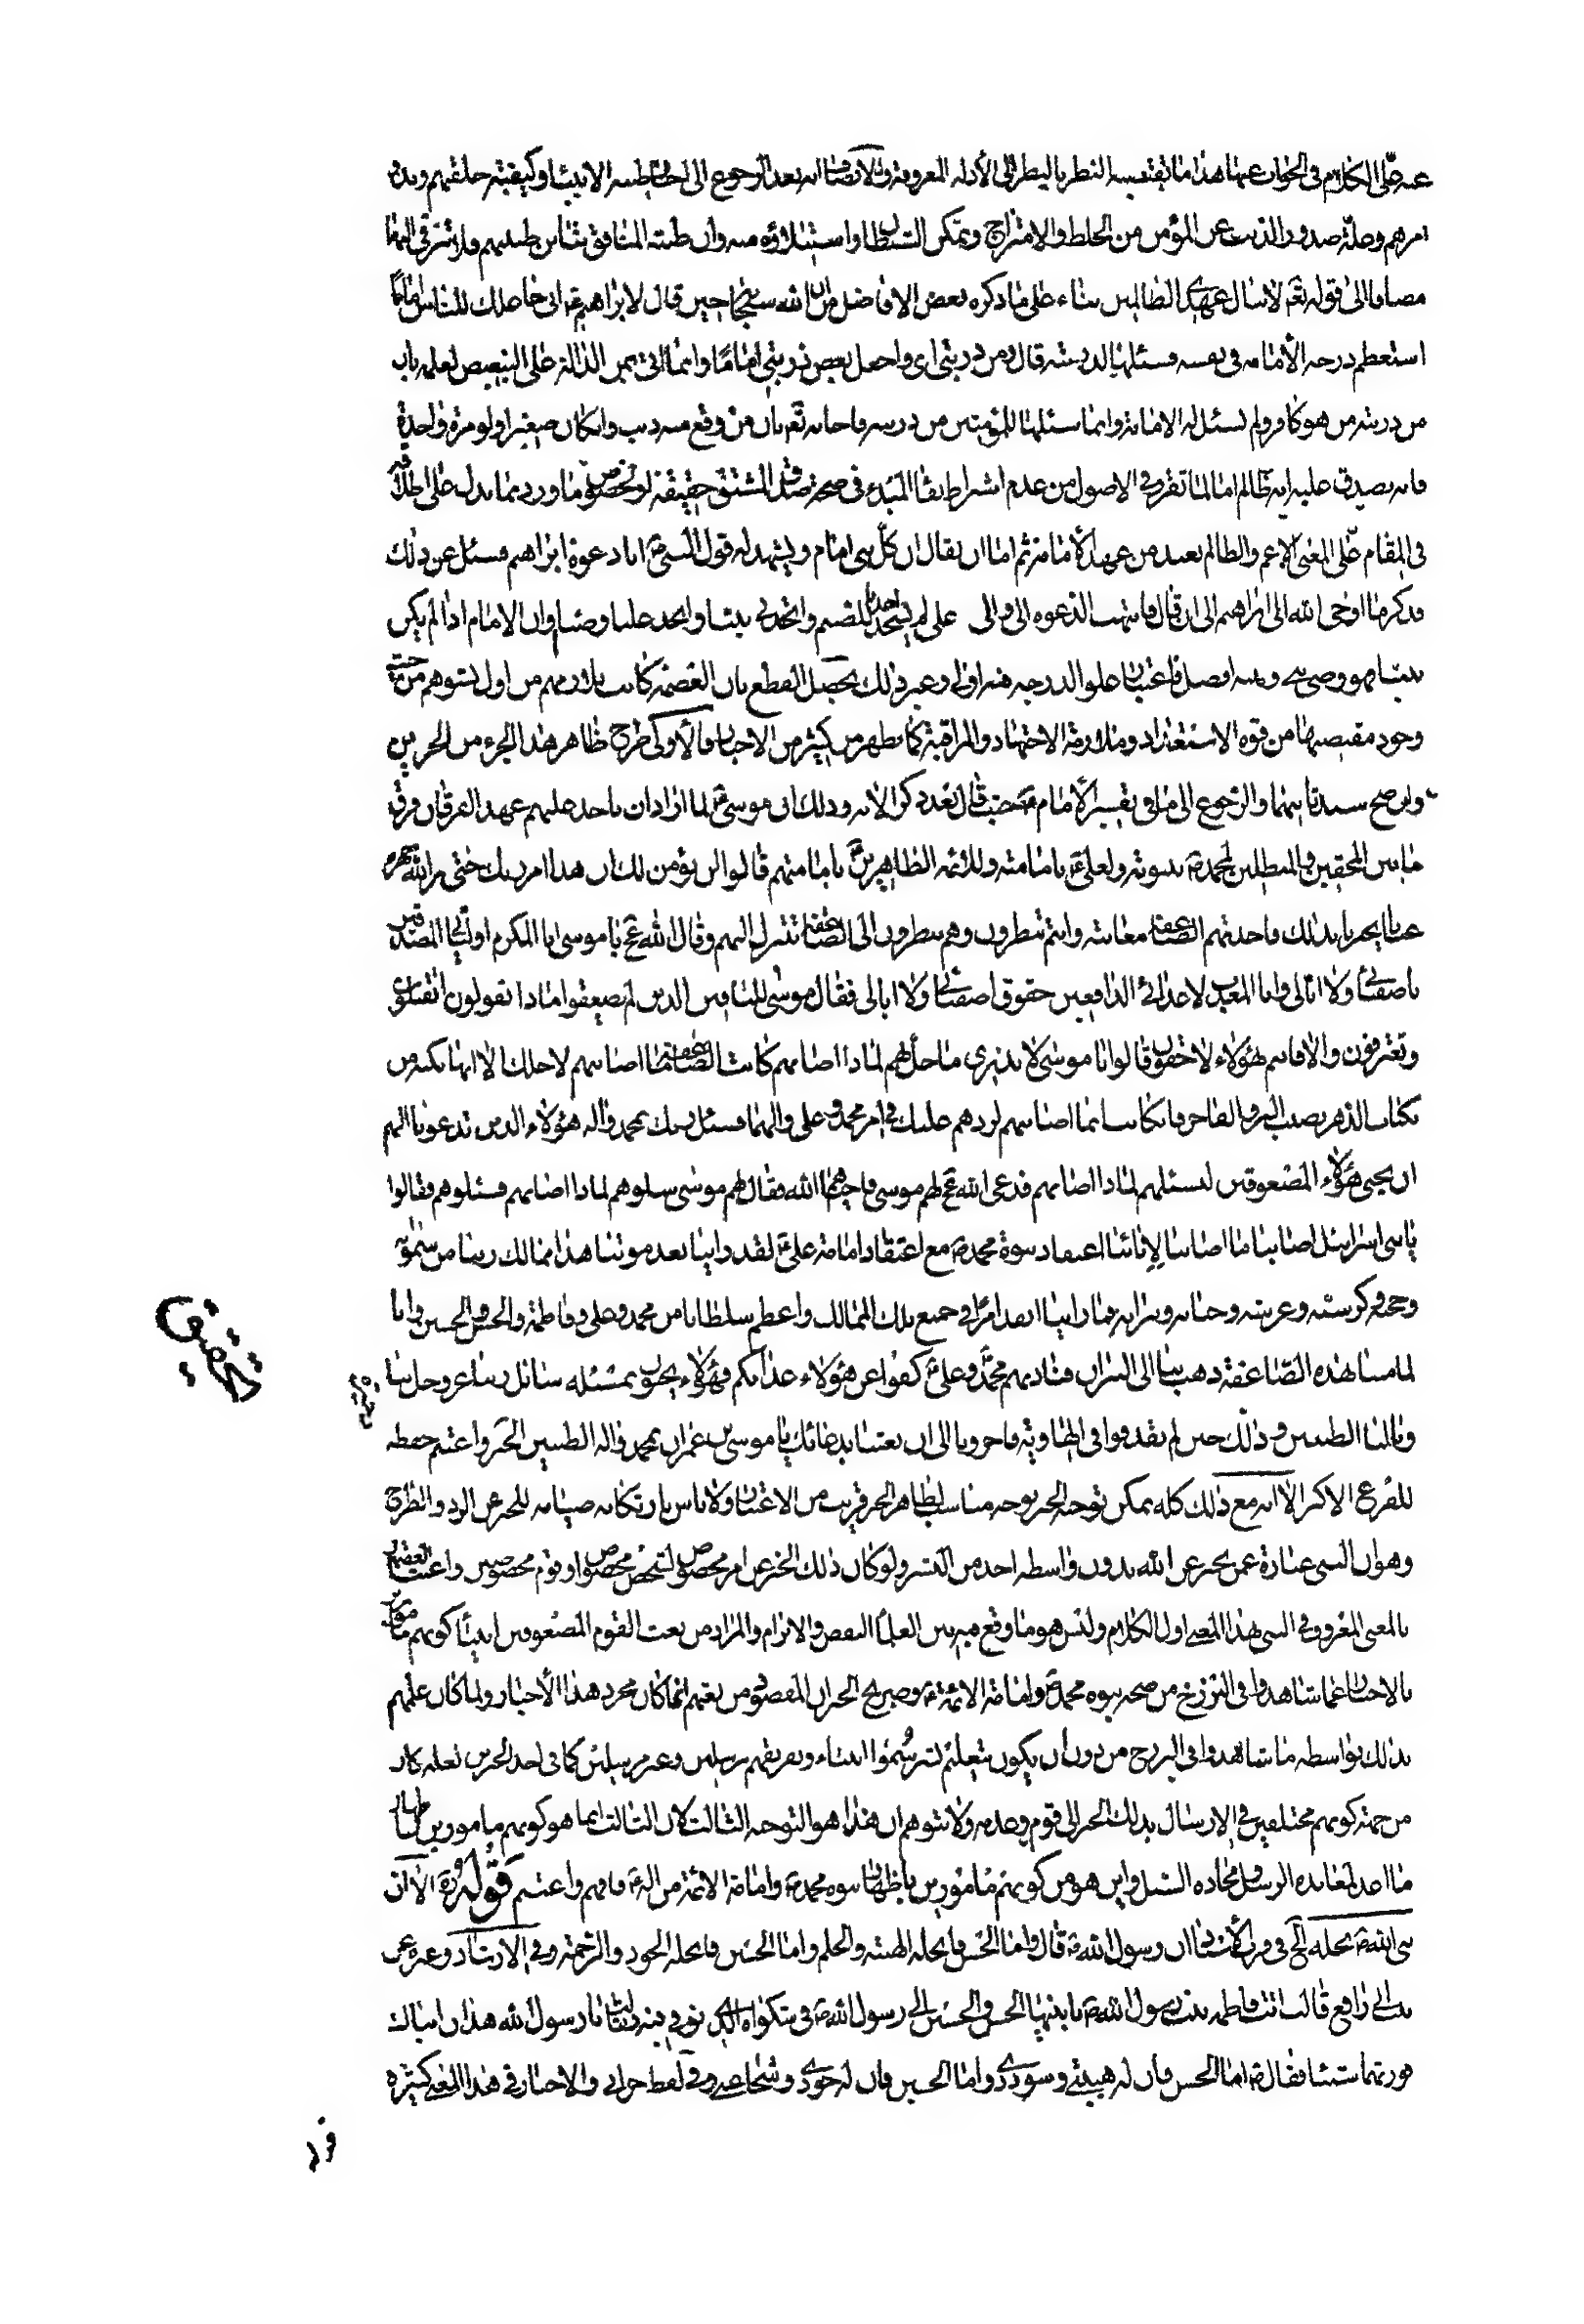 عنه صلى الكلام في الجواب عنها هذا ما يقتضيه النظر بالنظر الى الأدلة المعروفة والانصاف انه بعد الرجوع الى اخبار طينة الانبياء وكيفية خلقتهم وبدو
امرهم وعلة صدور الذنب عن المؤمن من الخلط والامتزاج وتمكن الشيطان واستيلاؤه منه وان طينة المنافق
مضافا الى قوله تعم لا ينال عهدي الظالمين بناء على ما ذكره بعض الافاضل من ان الله سبحانه حين قال لابراهيم ع اني جاعلك للناس اماما
استعظم درجه الأمامه في نفسه وسئلها لذريته قال ومن ذريتي اي واجعل بعض ذريتي اماما وانما اتى بمن الدالة على التبعيض لعلمه بان
من ذريته من هو كافر ولم يسئل له الامامة وانما سئلها للمؤمنين من ذريته فاجابه تعم بان من وقع منه ذنب وانكان صغيرا ولو مرة واحدة
فانه يصدق عليه انه ظالم اما لما تقرر في الاصول من عدم اشتراط بقاء المبدء في صحة صدق المشتق حقيقة او لخصوص ما ورد مما يدل على اطلاقه
في المقام على المعنى الاعم والظالم بعيد من عهد الأمامة ثم اما ان يقال ان كل نبي امام ويشهد له قول النبي ص انا دعوة ابراهيم فسئل عن ذلك
فذكر ما اوحى الله الى ابراهيم الى ان قال فانتهت الدعوه الي والى علي لم يسجد احدنا للصنم واتخذني نبيا واتخذ عليا وصيا وان الامام اذا لم يكن
نبيا فهو وصي نبي ونبيه افضل فاعتبار علو الدرجه فيه اولى وغير ذلك يحصل القطع بان العصمة كانت تلازمهم من اول نشوهم من حيث
وجود مقتضيها من قوه الاستعداد وملازمة الاجتهاد والمراقبة كما يظهر من كثير من الاخبار فالأولى طرح ظاهر هذا الجزء من الخبرين
ولو صح سندنا بينهما والرجوع الى ما في تفسير الأمام ع حيث قال بعد ذكر الايه وذلك ان موسى ع لما اراد ان ياخذ عليهم عهد الفرقان فرق
ما بين المحقين والمبطلين لمحمد ص بنبوته ولعلي ع بامامته وللائمه الطاهرين ع بامامتهم قالوا لن نؤمن لك ان هذا امر ربك حتى نرى الله جهرة
عيانا يخبرنا بذلك فاخذتهم الصاعقة معاينة وانتم تنظرون وهم ينظرون الى الصاعقة تنزل اليهم وقال الله عج يا موسى انا المكرم اوليائي المصدقين
باصفيائي ولا ابالي وانا المعذب لاعدائي الدافعين حقوق اصفيائي ولا ابالي فقال موسى للباقين الذين لم يصعقوا ماذا تقولون اتقبلون
وتعترفون والا فانتم بهؤلاء لاحقون قالوا يا موسى لا ندري ما حل بهم لماذا اصابهم كانت الصاعقة ما اصابتهم لاجلك الا انها نكبة من
نكبات الدهر تصيب البر والفاجر فان كانت انما اصابتهم لردهم عليك في امر محمد وعلي والهما فسئل ربك بمحمد واله هؤلاء الذين تدعونا اليهم
ان يحيي هؤلاء المصعوقين لنسئلهم لماذا اصابهم فدعى الله عج لهم موسى فاحياهم الله فقال لهم موسى سلوهم لماذا اصابهم فسئلوهم فقالوا
يا بني اسرائيل اصابنا ما اصابنا لابائنا اعتقاد نبوة محمد ص مع اعتقاد امامة علي ع لقد راينا بعد موتنا هذا ممالك ربنا من سمواته
وحجبه وكرسيه وعرشه وجنانه ونيرانه فما راينا انفذ امرا في جميع تلك الممالك واعظم سلطانا من محمد وعلي وفاطمة والحسن والحسين وانا
لما متنا بهذه الصاعقة ذهب بنا الى النيران فناديهم محمد وعلي ع كفوا عن هؤلاء عذابكم فهؤلاء يحيون بمسئله سائل ربنا عز وجل بنا
وبالنا الطيبين وذلك حين لم يقذفوا في الهاوية فاخرونا الى ان بعثنا بدعائك يا موسى بن عمران بمحمد واله الطيبين الخبر واغتنم حفظه
للفزع الاكبر الا انه مع ذلك كله يمكن توجيه الخبر بوجه مناسب لظاهر الخبر قريب من الاعتبار ولا باس بارتكابه صيانه للخبر عن الرد والطرح
وهو ان النبي عبارة عمن يخبر عن الله بدون واسطه احد من البشر ولو كان ذلك الخبر عن امر مخصوص لشخص مخصوص او قوم مخصوصين واعتبار العصمة
بالمعنى المعروف في النبي بهذا المعنى اول الكلام وليس هو ما وقع فيه بين العلماء النقض والابرام والمراد من بعث القوم المصعوقين انبياء كونهم مامورين
بالاخبار عما شاهدوا في البرزخ من صحة نبوه محمد ص وامامة الائمة ع وصريح الخبر ان المقصود من بعثهم انما كان مجرد هذا الأخبار ولما كان علمهم
بذلك بواسطه ما شاهدوا في البرزخ من دون ان يكون بتعليم بشر سموا انبياء وتفريقهم مرسلين وغير مرسلين كما في احد الخبرين لعله كان
من جهة كونهم مختلفين في الارسال بذلك الخبر الى قوم وعدمه ولا يتوهم ان هذا هو التوجيه الثالث لان الثالث انما هو كونهم مامورين
واين هو من كونهم مامورين باظهار نبوه محمد ص وامامة الائمة من اله ع فافهم واغتنم قوله ره الا ان
نبي الله ص نحله الخ في قرب الأسناد ان رسول الله ص قال واما الحسن فانحله الهيبة والحلم واما الحسين فانحله الجود والرحمة وفي الارشاد وغيره عن
ابي رافع قالت اتت فاطمه بنت رسول الله ص بابنيها الحسن والحسين الى رسول الله ص في شكواه التي توفي فيه فقالت يا رسول الله هذان ابناك
فورثهما شيئا فقال ص اما الحسن فان له هيبتي وسوددي واما الحسين فان له جودي وشجاعتي وفي لفظ جرأتي والاخبار في هذا المعنى كثيرة
تحقيق